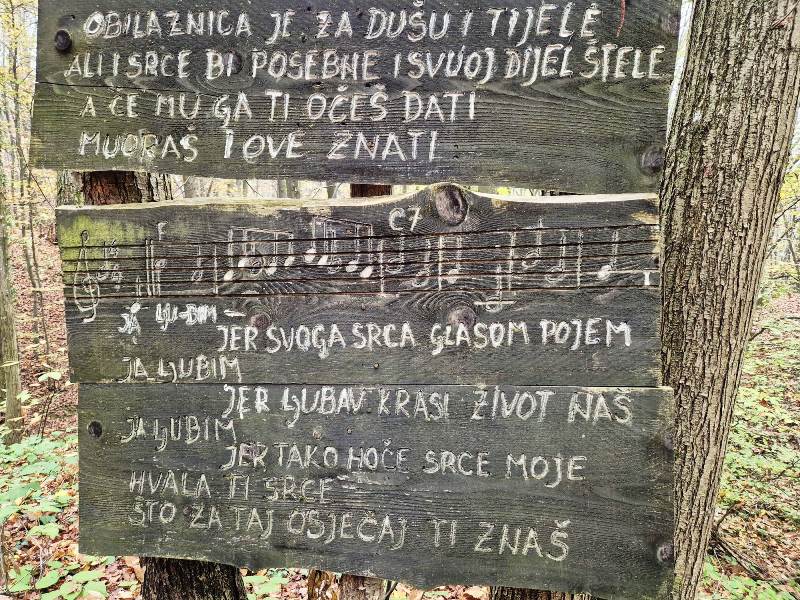 OBILAZNICA JE ZA DUŠU I TIJELE
ALI I SRCE BI POSEBNE I SVUOJ DIJEL ŠTELE
A ČE MU GA TI OČEŠ DATI
MUORAŠ I OVE ZNATI
F C7
JA LJU-BIM
JER SVOGA SRCA GLASOM POJEM
JA LJUBIM
JER LJUBAV KRASI ŽIVOT NAŠ
JA LJUBIM
JER TAKO HOČE SRCE MOJE
HVALA TI SRCE
ŠTO ZA TAJ OSJEČAJ TI ZNAŠ